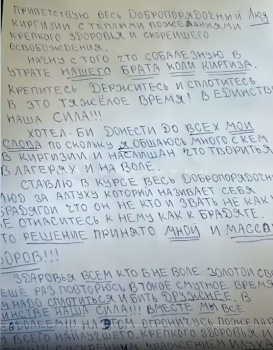 ПРИВЕТСТВУЮ ВЕСЬ ДОБРОПОРЯДОЧНЫЙ ЛЮД
КИРГИЗИИ С ТЕПЛЫМИ ПОЖЕЛАНИЯМИ
КРЕПКОГО ЗДОРОВЬЯ И СКОРЕЙШЕГО
ОСВОБОЖДЕНИЯ.
НАЧНУ С ТОГО ЧТО СОБАЛЕЗНУЮ В
УТРАТЕ НАШЕГО БРАТА КОЛИ КИРГИЗА.
КРЕПИТЕСЬ ДЕРЖИТЕСЬ И СПЛОТИТЕСЬ
В ЭТО ТЯЖЁЛОЕ ВРЕМЯ! В ЕДИНСТВ
НАША СИЛА!!!
ХОТЕЛ БИ ДОНЕСТИ ДО ВСЕХ МОИ
СЛОВА ПО СКОЛЬКУ Я ОБЩАЮСЬ МНОГО С КЕМ
В КИРГИЗИИ И НАСЛИШАН ЧТО ТВОРИТЬСЯ
В ЛАГЕРЯХ И НА ВОЛЕ.
СТАВЛЮ В КУРСЕ ВЕСЬ ДОБРОПОРЯДОЧН
ЛЮД ЗА АЛТУХУ КОТОРИЙ НАЗИВАЕТ СЕБЯ
БРАДЯГОЙ ЧТО ОН НЕ КТО И ЗВАТЬ НЕ КАК
НЕ ОТНАСИТЕСЬ К НЕМУ КАК К БРАДЯГЕ.
ТО РЕШЕНИЕ ПРИНЯТО МНОЙ И МАССО
ВОРОВ!!!
ЗДАРОВЬЯ ВСЕМ КТО В НЕ ВОЛЕ. ЗОЛОТОЙ СВ
ЕЩЕ РАЗ ПОВТОРЮСЬ В ТАКОЕ СМУТНОЕ ВРЕМЯ
НАДО СПЛОТИТЬСЯ И БИТЬ ДРУЖНЕЕ. В
ИНСТВЕ НАША СИЛА!!! ВМЕСТЕ МЫ ВСЕ
НА ЭТОМ ОГРАНИЧУСЬ ПОЖЕЛАВ
ВСЕГО НАИЛУЧШЕГО, КРЕПКОГО ЗДОРОВЬЯ,